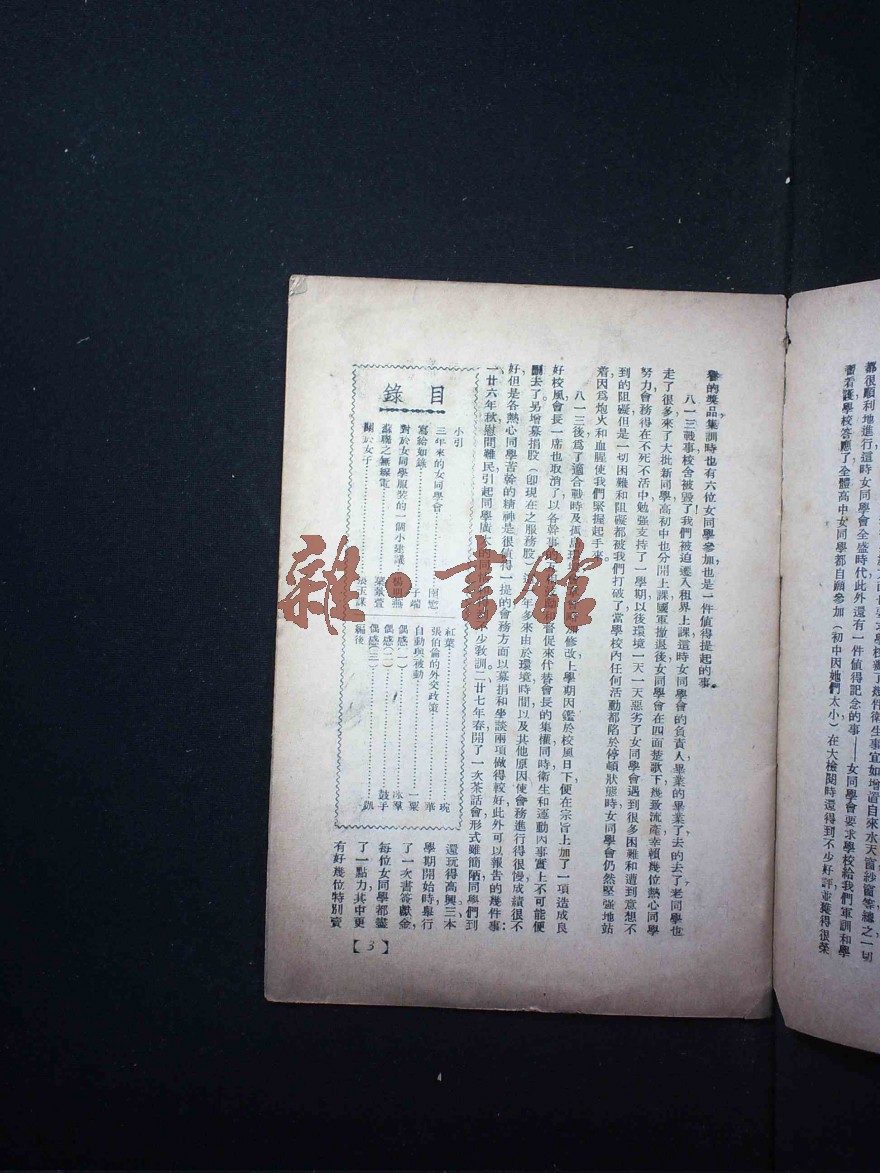 都很順利地進行，這時女同學會全盛時代此外還有一件值得記念的事——女同學會要求學校給我們軍訓和學
看護學校答應了全體高中女同學都自願參加（初中因她們太小）在大檢閱時還得到不少好評並獲得很榮
譽的獎品集訓時也有六位女同學參加，也是一件值得提起的事。
八一三戰事校舍被毀了我們被迫遷入租界上課這時女同學會的負責人畢業的畢業了去的去了老同學也
走了很多來了大批新同學高初中也分開上課國軍撤退後女同學會在四面楚歌下幾致流產幸賴幾位熱心同學
努力會務得在不死不活中勉強支持了一學期以後環境一天一天惡劣了女同學會遇到很多困難和遭到意想不
到的阻礙但是一切困難和阻礙都被我們打破了當學校內任何活動都陷於停頓狀態時女同學會仍然堅強地站
着因爲炮火和血腥使我們緊握起手來。
八一三後爲了適合戰時及孤島環境修改上學期因鑑於校風日下便在宗旨上加了一項造成良
好校風會長一席也取消了以各幹事和督促來代替會長的集權同時衛生和運動因事實上不可能便
刪去了另增募捐股（卽現在之服務股）年多來由於環境時間以及其他原因使會務進行得很慢成績很不
好但是各熱心同學苦幹的精神是很値得一提的會務方面以募捐和坐談兩項做得較好此外可以報告的幾件事：
一廿六年秋慰問難民引起同學廣大的同少教訓二廿七年春開了一次茶話會形式雖簡陋同學們到
還玩得高興三本
學期開始時舉行
了一次書答獻金，
每位女同學都盡
了一點力其中更
有好幾位特別賣
目錄
小引
三年來的女同學會
寫給如錄 子端
對於女同學服裝的一個小建議 楊明燕
蘇聯之無線電 葉
關於女子
紅葉 琬
張伯倫的外交政策 華
自動與被動 一粟
偶感（一） 冰羣
偶感（二） 鼓手
偶感（三） 凱
編後
【3】
雜·書館